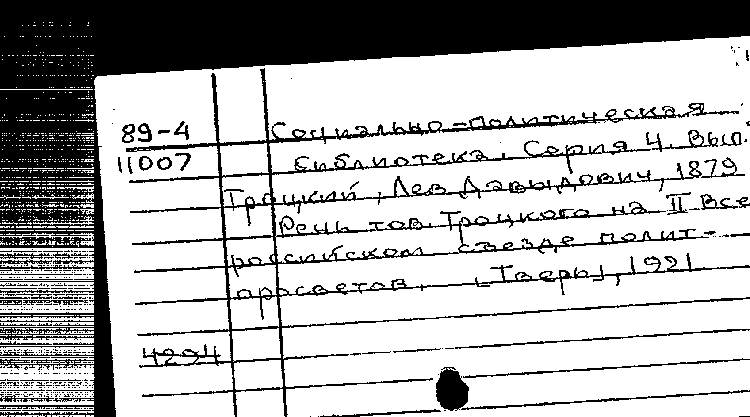 89-4 Социально-политическая
11007 библиотека. Серия 4. Вып.
Троцкий, Лев Давыдович, 1879
Речь тов. Троцкого на II Все
российском съезде полит-
просветов. [Тверь], 1921
4294